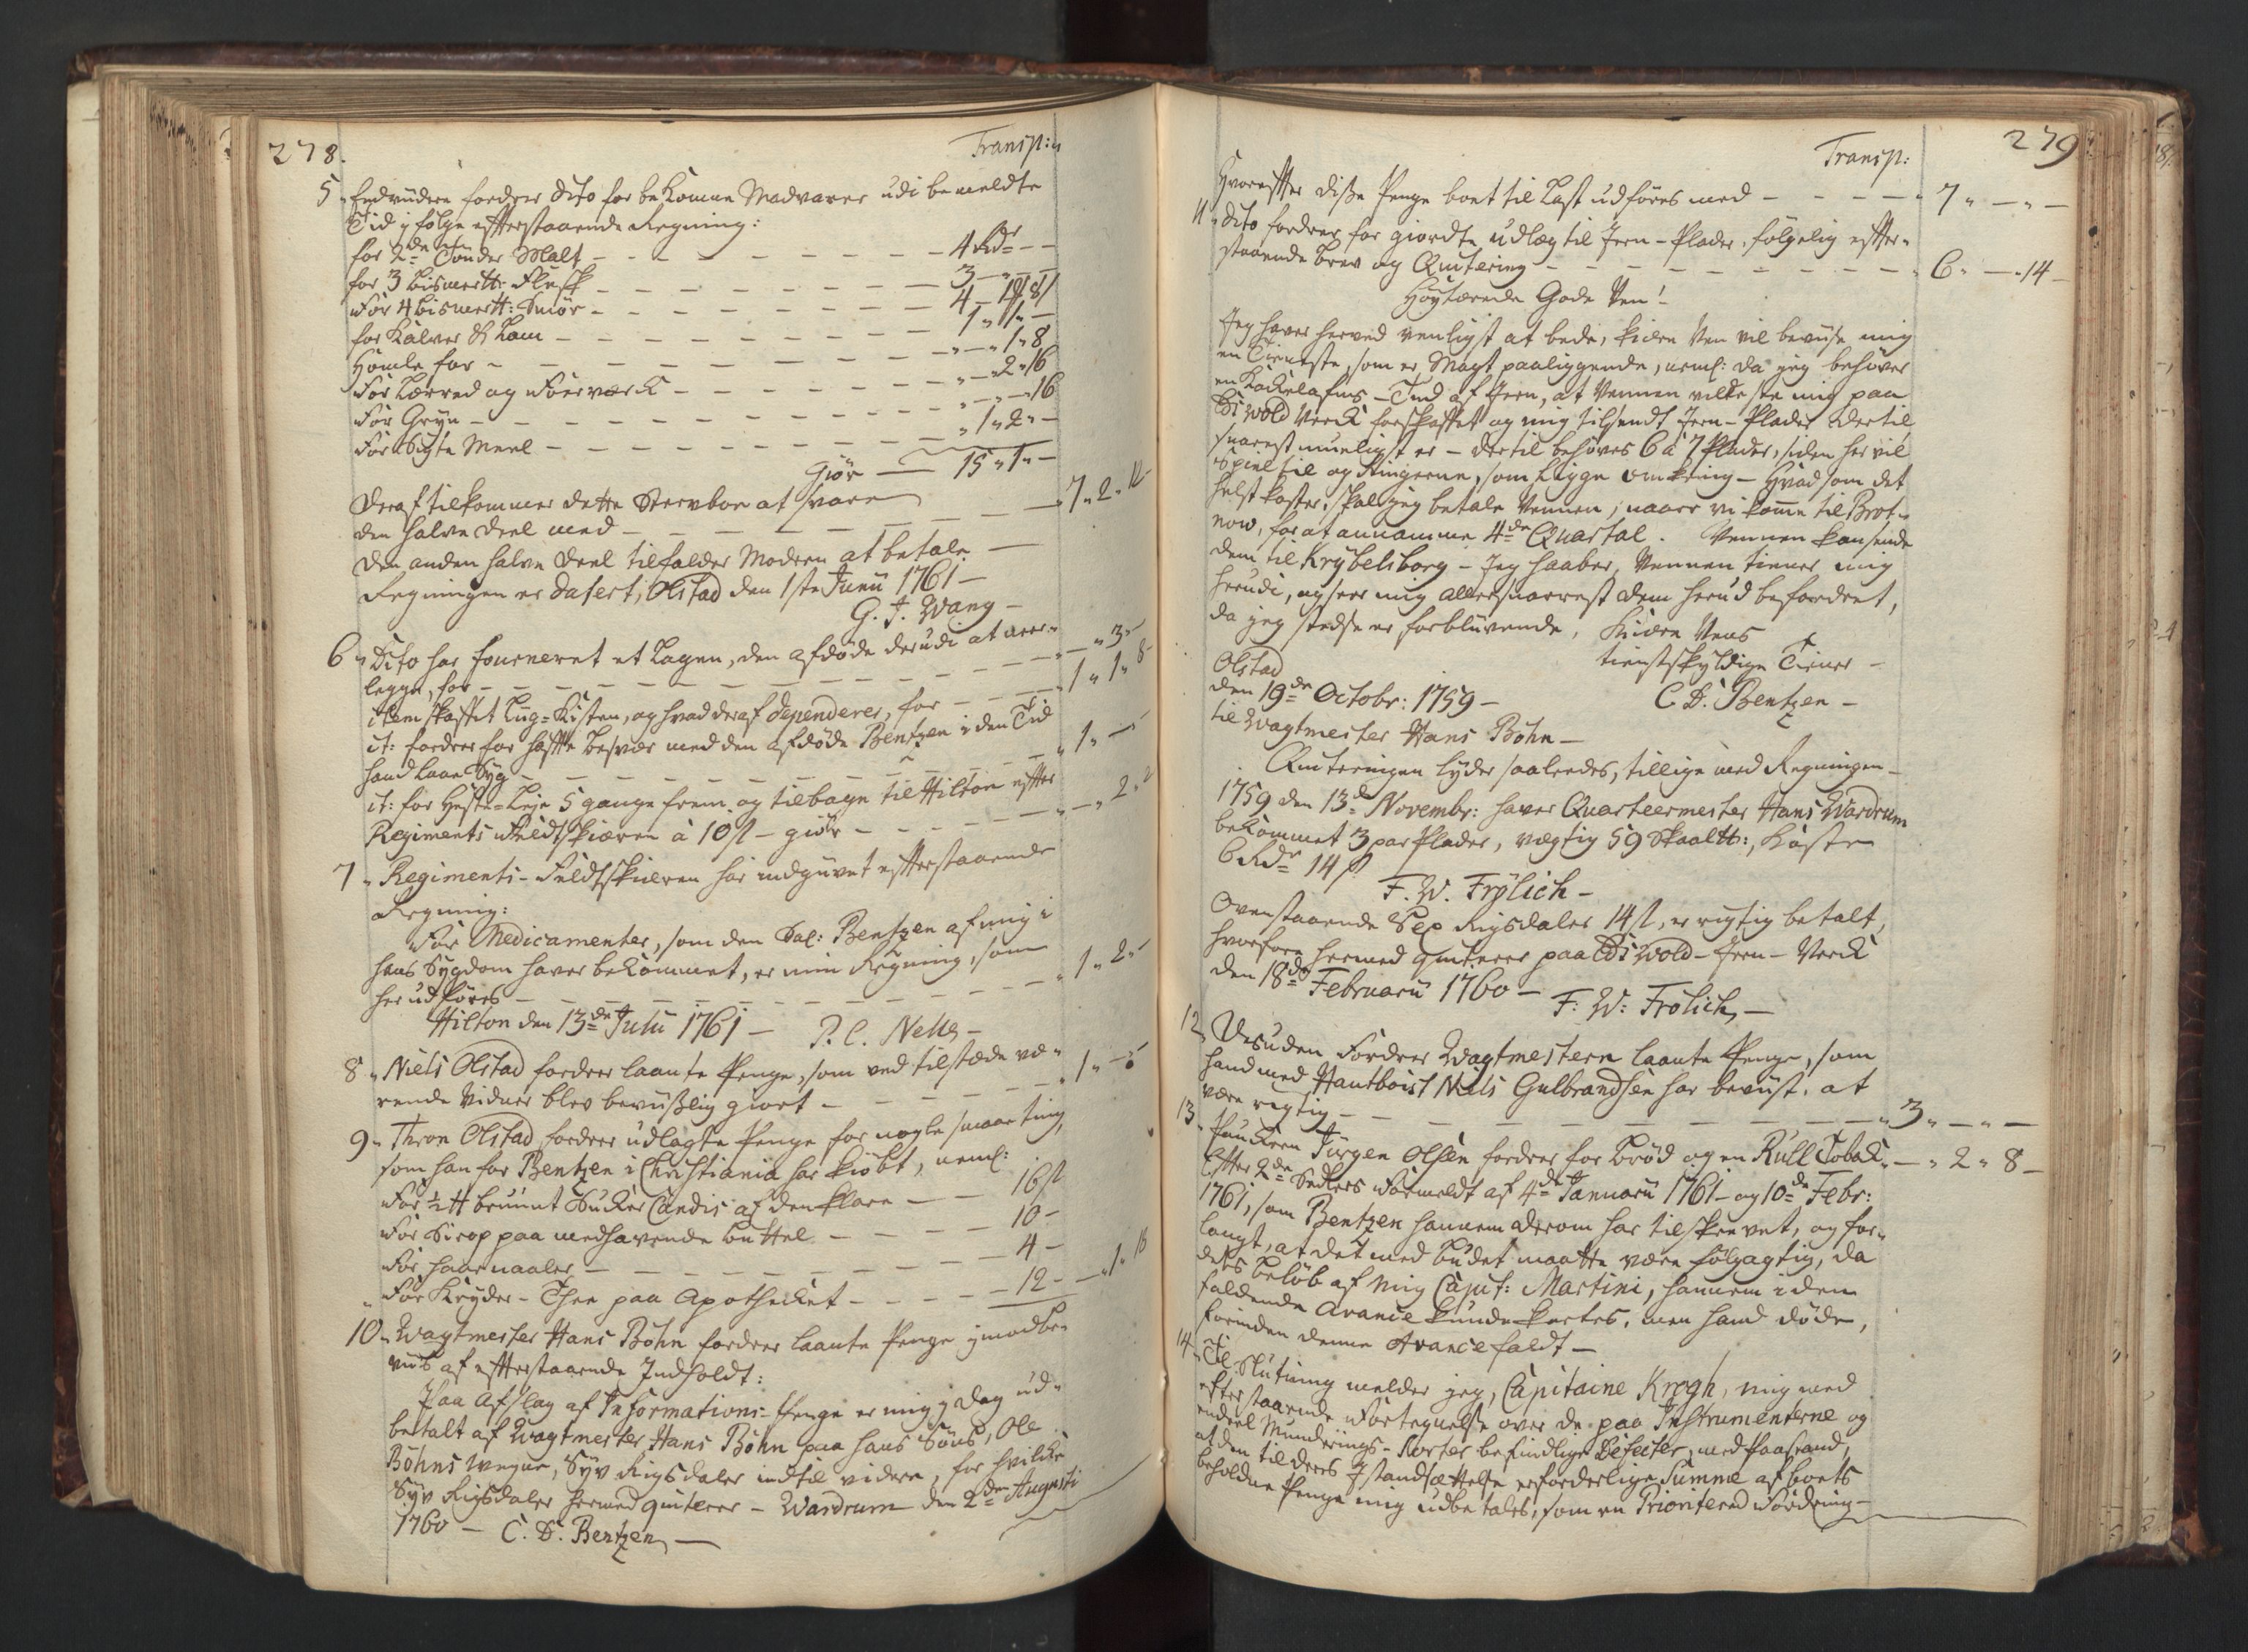 278.
Transp:
5. Endvidere fordrer dito for bekomne Madvarer udi bemeldte
Tid i følge efterstaaende Regning:
for 2de Tønder Malt - - - 4 Rdr - -
for 3 bismertt: Flesk - - - 3 - " - -
For 4 bismertt: Smør - - - 4 -
for Kalver & Lam - - - 1 " 1 " -
Homle for - - - " - " 1 " 8
For Lærred og - - - " - " 2 " 16
For Gryn - - - " - " - 16
For Sigte Meel - - - " 1 " 2 " -
Giør - 15 " 1 " -
Deraf tilkommer dette Stervboe at svare
den halve Deel med - - - 7 " 2 " 12
Den anden halve Deel tilfalder Modern at betale -
Regningen er datert, Olstad den 1ste Junii 1761 -
G. J. Wang -
6 " Dito har fourneret et Lagen, den afdøde derudi at
legge, for - - - " - " 3 "
item skaffet Liig-Kisten, og hvad deraf dependerer, for - - " 1 " 1 " 8
it: fordrer for hafte besvær med den afdøde Bentzen i den Tid
hand laae Syg - - - " 1 " -
it: for Heste-Leje 5 gange frem og tilbage til Hilton efter
Regiments Feldtskiæren à 10 ß - giør - - - " - " 2 " 2
7 " Regiments-Feldtskieren har indgivet efterstaaende
Regning:
For Medicamenter, som den Sal: Bentzen af mig i
hans Sygdom haver bekommet, er min Regning, som
her udføres - - - " 1 " 2 "
Hilton den 13de Julii 1761 - P. C. Nelle -
8 " Niels Olstad fordrer laante Penge, som ved tilstæde væ-
rende Vidner blev beviißlig giort - - - " 1 " -
9 " Thron Olstad fordrer udlagte Penge for nogle smaae ting,
som han for Bentzen i Christiania har kiøbt, neml:
For ½ tt bruunt Sukker Candis af den klare - - 16 ß
For Sirop paa medhavende buttel - - - 10 -
For Haarnaaler - - - 4 -
For Kryder-Thee paa Apotheket - - - 12 - - " 1 " 18
10 " Wagtmester Hans Bøhn fordrer laante Penge imod be-
viis af efterstaaende Indholdt:
Paa Afslag af Informations-Penge er mig i Dag ud-
betalt af Wagtmester Hans Bøhn paa hans Søns, Ole
Bøhns wegne, Syv Rigsdaler indtil videre, for hvilke
Syv Rigsdaler hermed qviterer - Wardrum den 2den Augusti
1760 - C. D. Bentzen -
279
Transp:
Hvorefter disse Penge boet til Last udføres med - - - 7 " - " -
11 " Dito fordrer for giordte udlæg til Jern-Plader, følgelig efter-
staaende brev og Qvitering - - - 6 " - " 14 -
Høytærede Gode Ven!
Jeg haver herved venligst at bede, kiere Ven vil beviise mig
en Tieneste, som er Magt paaliggende, neml: da jeg behøver
en Kakelafns-Ind af Jern, at Vennen vilde mig paa
Eidswold Verk forskaffet og mig tilsendt Jern-Plader dertil
snarest mueligt er - dertil behøves 6 à 7 Plader, siden her vil
Spiel til og Ringerne, som ligge omkring - Hvad som det
helst koster, skal jeg betale Vennen, naar vi komme til Brot-
now, for at annamme 4de Quartal. Vennen kan sende
dem til Krybelsborg - Jeg haaber, Vennen tiener mig
herudi, og seer mig allersnarest dem herud befordret,
da jeg stedse er forblivende, Kiære Vens
tienstskyldige Tiener -
Olstad
den 19de Octobr: 1759 - C. D. Bentzen -
til Wagtmester Hans Bøhn -
Qviteringen lyder saaledes, tillige med Regningen -
1759 den 13de Novembr: haver Quarteermester Hans Wardrum
bekommet 3 par Plader, vægtig 59 Skaaltt:, Koster
6 Rdr 14 ß
F. W. Frölich -
Ovenstaaende Sex Rigsdaler 14 ß, er rigtig betalt,
hvorfore hermed qviterer paa Eidswold-Jern-Werk
den 18de Februarii 1760 - F: W: Frölich -
12 " Desuden Fordrer Wagtmestern laante Penge, som
hand med Hautboist Niels Gulbrandsen har beviist, at
være rigtig - - - " 3 " - " -
13 " Paukern Jürgen Olsen fordrer for Brød og en Rull Tobak - " 2 " 8 -
Efter 2de Sedlers Formeldt af 4de Januarii 1761 - og 10de Febr:
1761, som Bentzen hannem derom har tilskrevet, og for-
langt, at det med budet maatte være følgagtig, da
dets beløb af mig Capit: Martini, hannem i dem
faldende Avance kunde kortes, men hand døde,
forinden denne Avance faldt -
14 " Til Slutning melder jeg, Capitaine Krogh, mig med
efterstaaende Fortegnelse over de paa Instrumenterne og
endeel Munderings-Sorter befindlige Defecter, med Paastand,
at den til deres Istandsættelse erforderlige Summe af boets
beholdne Penge mig udbetales, som en Prioritered Fordring -